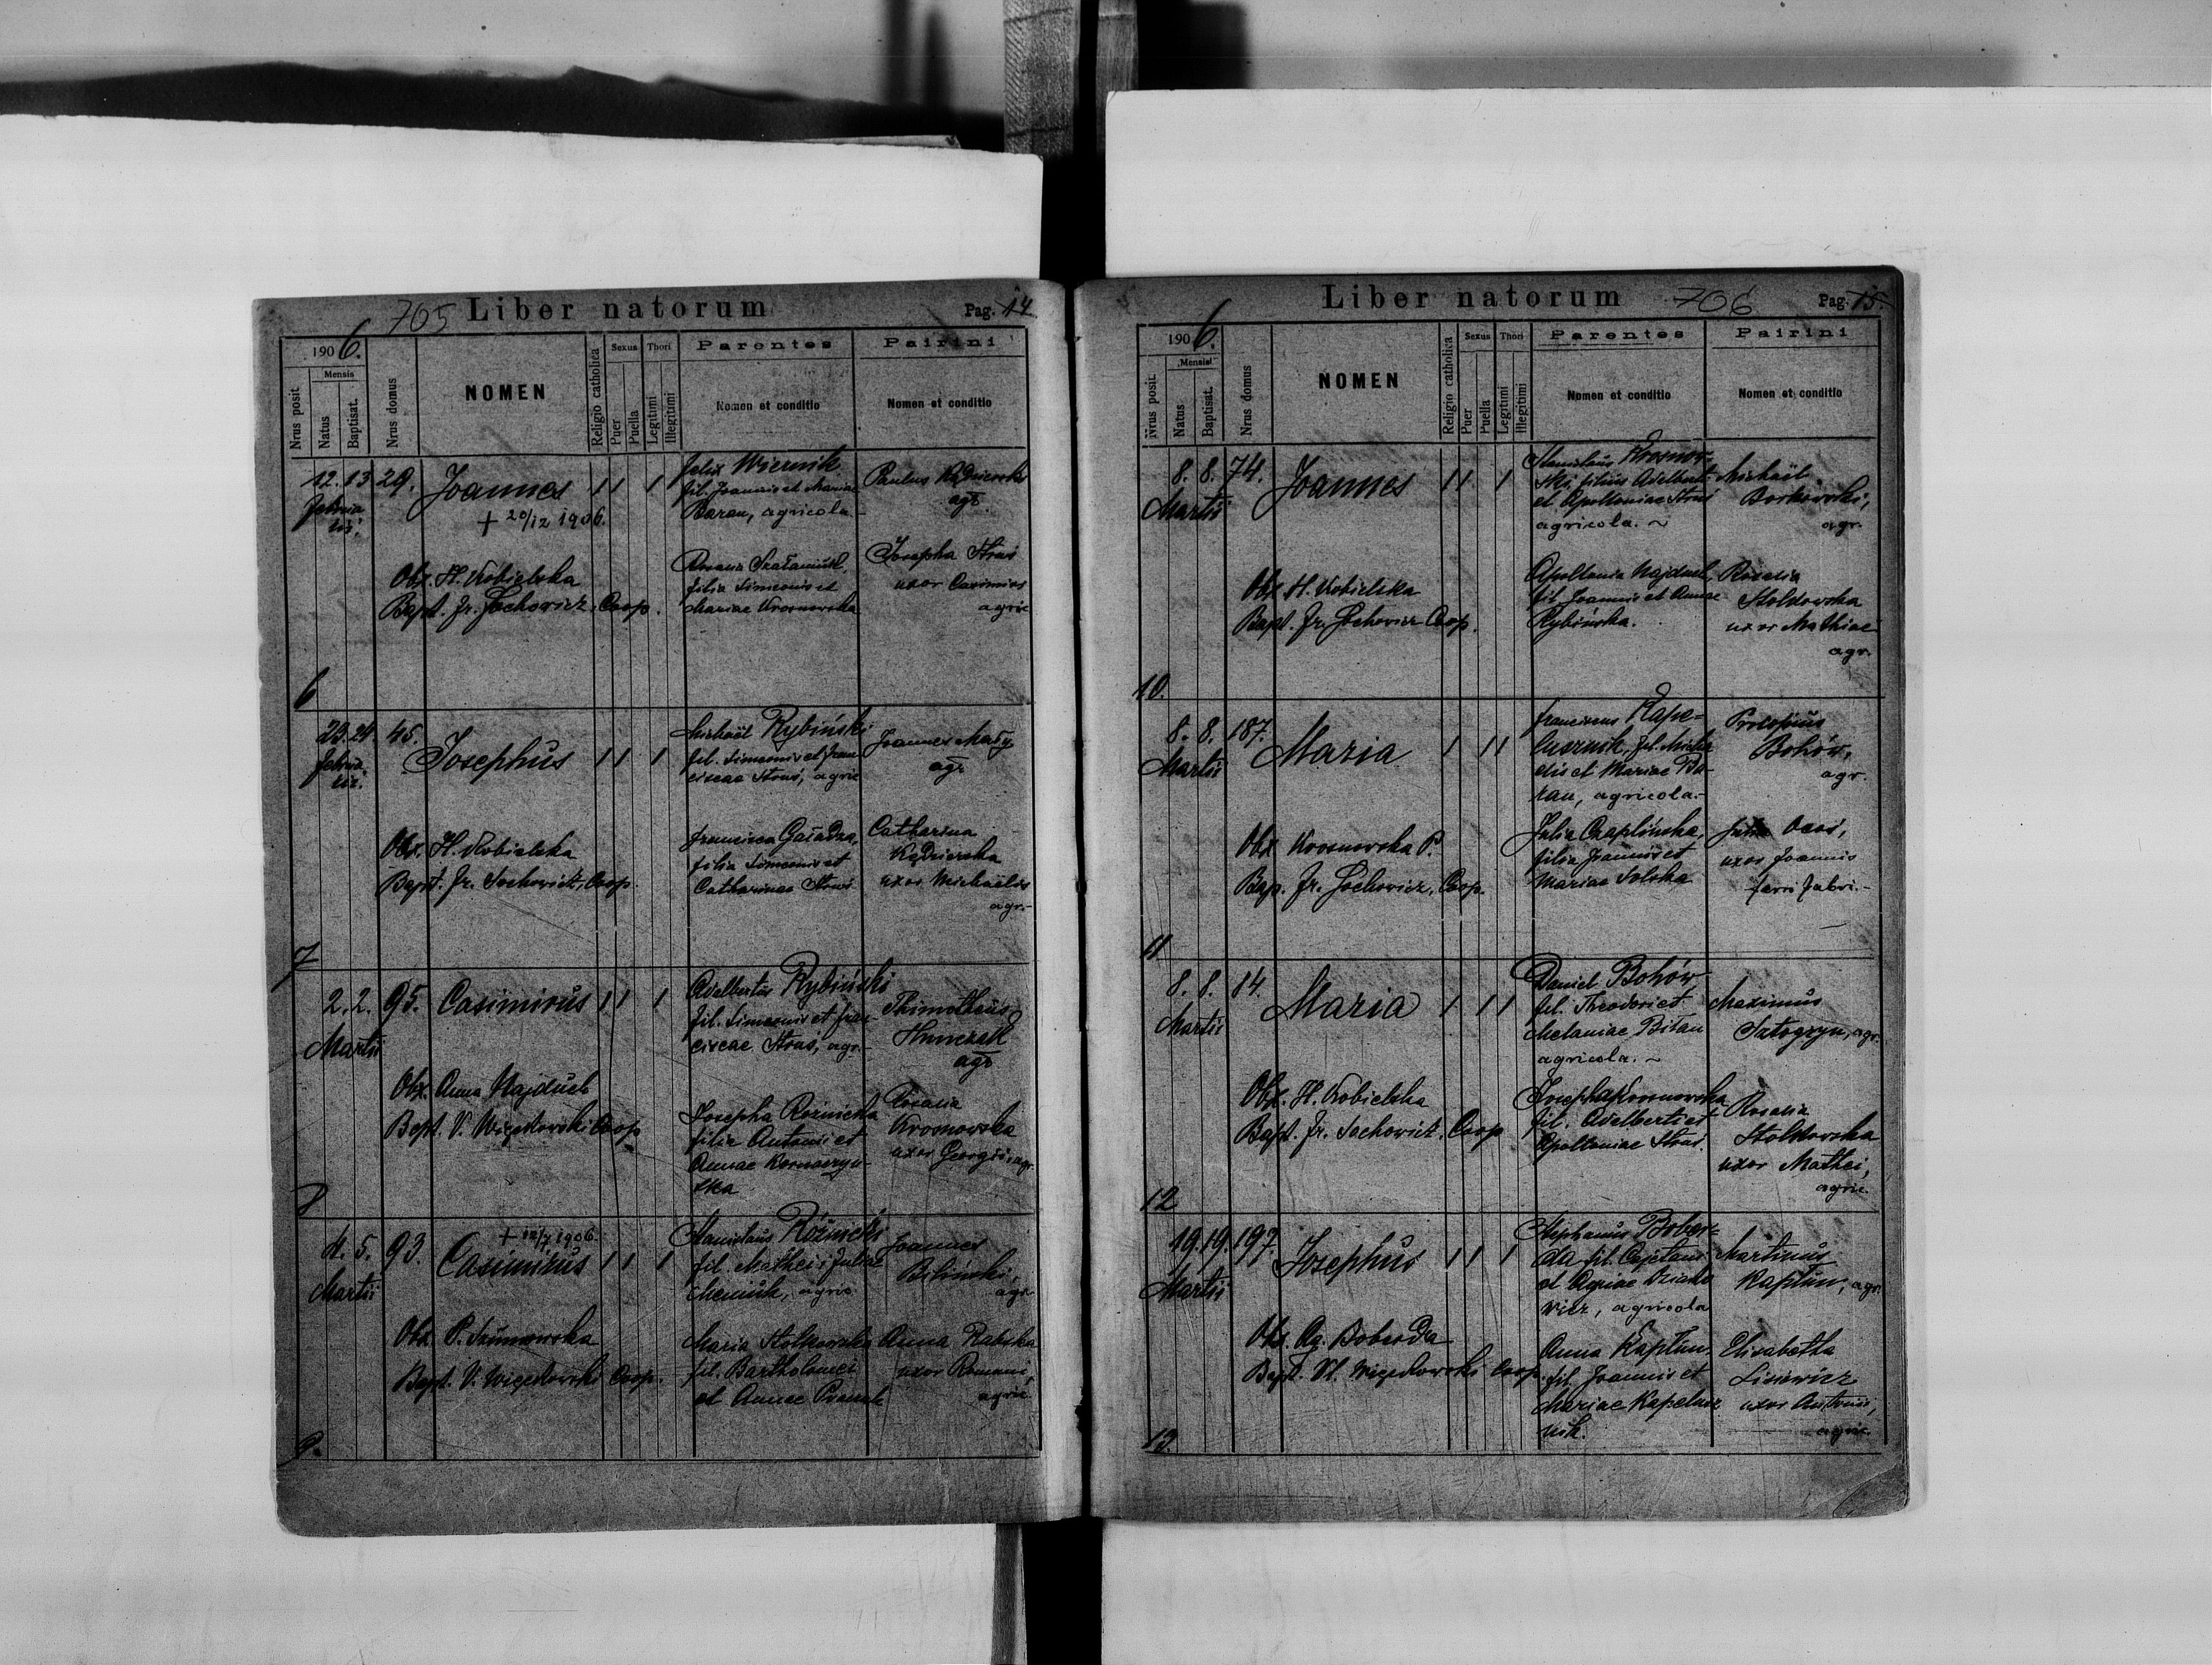 705 Liber natorum Pag. 14
1906.
Nrus posit.
Mensis
Natus
Baptisat.
Nrus domus
NOMEN
Religio catholica
Sexus
Puer
Puella
Thori
Legitimi
Illegitimi
Parentes
Nomen et conditio
Patrini
Nomen et conditio
12. 13. 29. Joannes 1 1 1
Februa
rii.
+ 20/12 1906.
Obx. H. Kobielska
Bapt. Fr. Sochowicz, Coop.
Felix Wiernik
fil. Joannis et Mariae
Baran, agricola.
filia Simeonis et
Mariae Krosnowska
Paulus
agr.
Josepha Straś
uxor Casimiri
agric
6
23. 24. 45. Josephus 1 1 1
Februa
rii.
Obx. H. Kobielska
Bapt. Fr. Sochowicz, Coop.
Michaël Rybiński
fil. Simeonis et Fran
ciscae Straś, agric
Francisca
filia Simeonis et
Catharinae Straś
Joannes Mały
agr.
Catharina
Kędzierska
uxor Michaëlis
agr.-
7
2. 2. 95. Casimirus 1 1 1
Martii
Obx. Anna Najduch
Bapt. V. Więckowski Coop
Adelbertus Rybiński
fil. Simeonis et Fran
ciscae Stras, agr.-
Josepha Roźnicka
filia Antonii et
Annae
ska
Thimotheus
agr
Rosalia
Krosnowska
uxor Georgii, agr.
8
4. 5. 93. Casimirus 1 1 1
Martii
+ 12/7 1906
Obx P.
Bapt. V. Więckowski Coop.
Stanislaus Róźnicki
fil. Mathei i Juliae
agric.
Maria Stolkowska
fil. Bartholomei
et Annae
Joannes
Biliński,
agr.
Anna
uxor Romani,
agric.
9.
Liber natorum 706 Pag. 15.
1906.
Nrus posit.
Mensis
Natus
Baptisat.
Nrus domus
NOMEN
Religio catholica
Sexus
Puer
Puella
Thori
Legitimi
Illegitimi
Parentes
Nomen et conditio
Patrini
Nomen et conditio
8. 8. 74. Joannes 1 1 1
Martii
Obx H. Kobielska
Bapt. Fr. Sochowicz Coop.
Stanislaus Krosnow-
ski filius Adelberti
et Apolloniae Straś
agricola. ~
Apollonia Najduch,
fil. Joannis et Annae
Rybińska.
Michaël
Borkowski,
agr.
Rosalia
Stolkowska
uxor Mathiae
agr.
10.
8. 8. 187. Maria 1 1 1
Martii
Obx Krosnowska P.
Bap. Fr. Sochowicz, Coop.
Franciscus Kape-
lusznik, fil. Micha
elis et Mariae Ba-
ran, agricola.-
Julia Czaplińska,
filia Joannis et
Mariae Solska
Procopius
Bohów,
agr.
uxor Joannis
ferri fabri.-
11
8. 8. 14. Maria 1 1 1
Martii
Obx. H. Kobielska
Bapt. Fr. Sochowicz, Coop
Daniel Bohów,
fil. Theodori et
Melaniae Bilan
agricola. ~
Josepha Krosnowska
fil. Adelberti et
Apolloniae Straś.
Maximus
agr.
Rosalia
Stolkowska
uxor Mathei,
agric.
12
19. 19. 197. Josephus 1 1 1
Martii
Obx. Ag. Boberda
Bapt. Vl. Więckowski Coop.
Stephanus Bober-
da fil. Cajetani
et Agnae
wicz, agricola
Anna Kaptun,
fil. Joannis et
Mariae Kapelusz
nik.
Martinus
Kaptun, agr.
Elisabetha
Lisiewicz
uxor Antonii,
agric.
13.